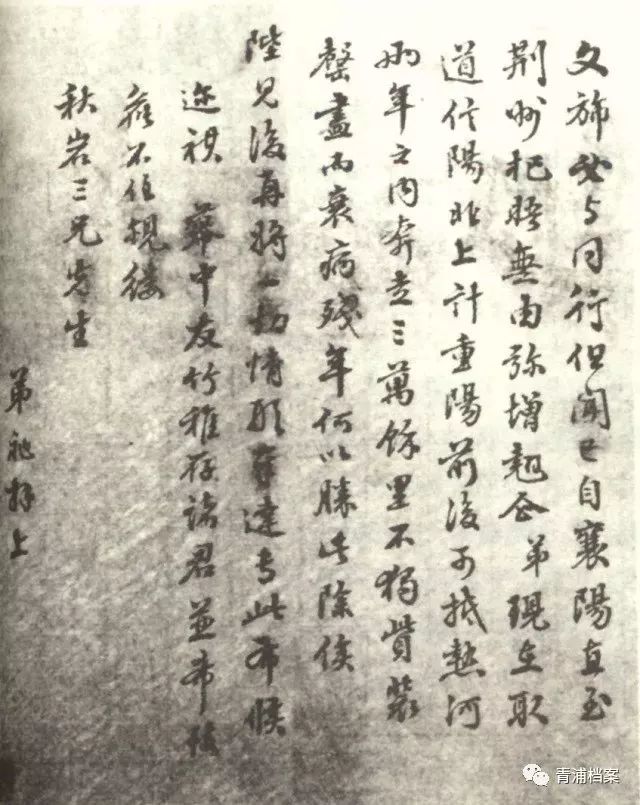 文旆必与同行但闻已自襄陽直至
荆州把晤無由弥增翹企弟現在取
道信陽北上計重陽前後可抵熱河
兩年之内奔走三萬餘里不獨貲裝
罄盡而衰病殘年何以勝此除俟
陛見後再將一切情形奉達専此布候
近祺 幕中友竹雅存諸君並希致
候不任覼縷
秋岩三兄先生
弟昶拜上
青浦档案